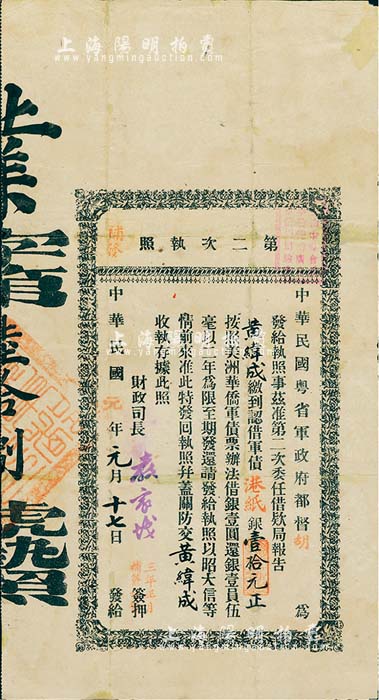 上海陽明拍賣
www.yangmingauction.com
第二次執照
中華民國粵省軍政府都督胡 為
發給執照事茲准第二次委任借欵局報告
黄緯成繳到認借軍債港紙銀壹拾元正
按照美洲華僑軍債票辦法借銀壹圓還銀壹員伍
毫定三年為限至期發還請發給執照以昭大信等
情前來准此特發回執照幷蓋關防交黄緯成
收執存據此照
財政司長 簽押
中華民國元年元月十七日 發給
陸拾捌號